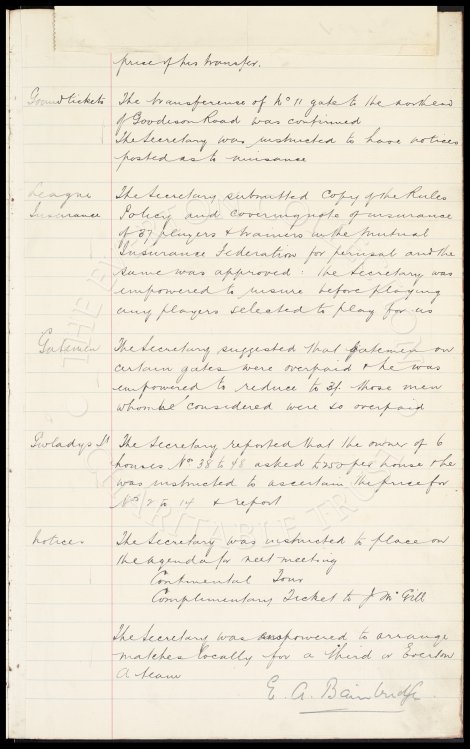 price of his transfer.
Ground tickets The transference of No 11 gate to the north end
of Goodison Road was confirmed
The Secretary was instructed to have notices
posted as to nuisance
League The Secretary submitted Copy of the Rules
Insurance Policy and covering note of insurance
of 37 players & trainers in the Mutual
Insurance Federation for perusal and the
same was approved: The Secretary was
empowered to insure before playing
any players selected to play for us
Gatemen The Secretary suggested that Gatemen on
certain gates were overpaid & he was
empowered to reduce to 3/- those men
whom he considered were so overpaid
Gwladys St The Secretary reported that the owner of 6
houses Nos 38 to 48 asked £250 per house & he
was instructed to ascertain the price for
Nos 2 to 14 & report
Notices The Secretary was instructed to place on
the agenda for next meeting
Continental Tour
Complimentary Ticket to J McGill
The Secretary was empowered to arrange
matches locally for a third or Everton
A team
E. A. Bainbridge
CHARITABLE TRUST